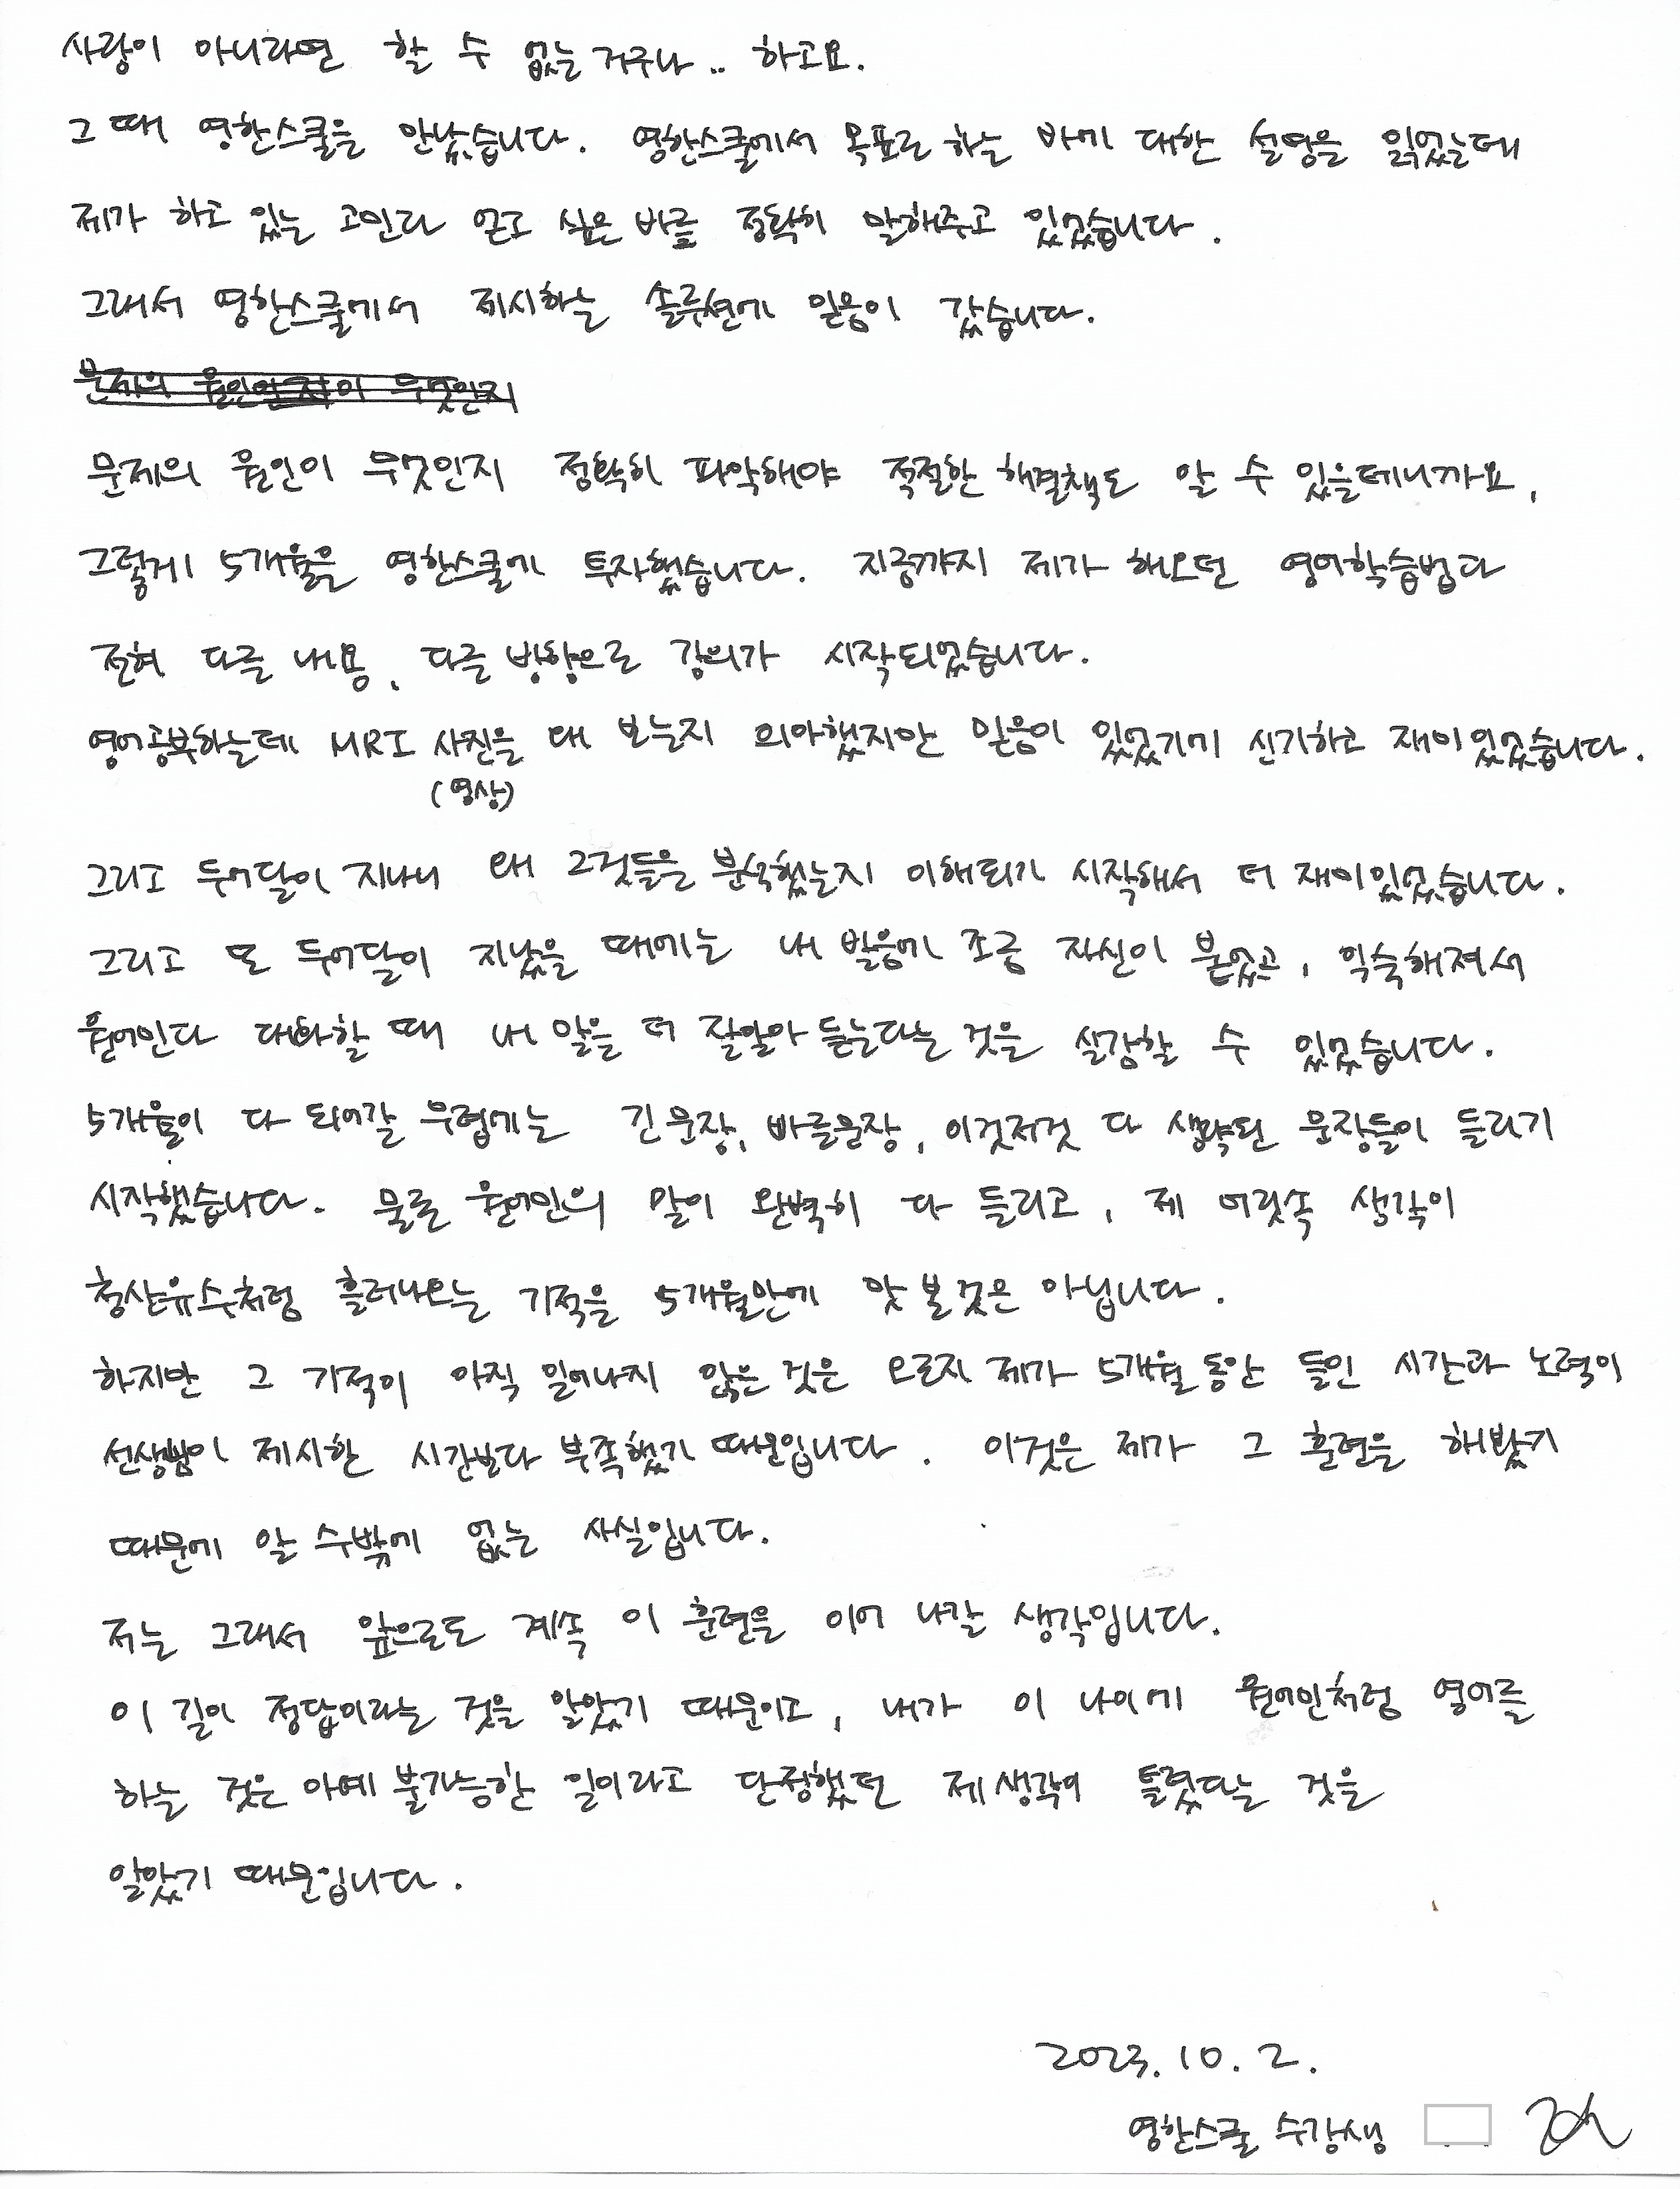 사랑이 아니라면 할 수 없는 거구나.. 하고요.
그 때 영한스쿨을 만났습니다. 영한스쿨에서 목표로 하는 바에 대한 설명을 읽었는데
제가 하고 있는 고민과 얻고 싶은 바를 정확히 말해주고 있었습니다.
그래서 영한스쿨에서 제시하는 솔루션에 믿음이 갔습니다.
문제의 원인이 무엇인지 정확히 파악해야 적절한 해결책도 알 수 있을테니까요.
그렇게 5개월을 영한스쿨에 투자했습니다. 지금까지 제가 해오던 영어학습법과
전혀 다른 내용, 다른 방향으로 강의가 시작되었습니다.
영어공부하는데 MRI 사진을 왜 보는지 의아했지만 믿음이 있었기에 신기하고 재미있었습니다.
(영상)
그리고 두어달이 지나니 왜 그것들을 분석했는지 이해되기 시작해서 더 재미있었습니다.
그리고 또 두어달이 지났을 때에는 내 발음에 조금 자신이 붙었고, 익숙해져서
원어민과 대화할 때 내 말을 더 잘알아 듣는다는 것을 실감할 수 있었습니다.
5개월이 다 되어갈 무렵에는 긴 문장, 빠른문장, 이것저것 다 생략된 문장들이 들리기
시작했습니다. 물론 원어민의 말이 완벽히 다 들리고, 제 머릿속 생각이
청산유수처럼 흘러나오는 기적을 5개월만에 맛 본 것은 아닙니다.
하지만 그 기적이 아직 일어나지 않은 것은 오로지 제가 5개월 동안 들인 시간과 노력이
선생님이 제시한 시간보다 부족했기 때문입니다. 이것은 제가 그 훈련을 해봤기
때문에 알 수밖에 없는 사실입니다.
저는 그래서 앞으로도 계속 이 훈련을 이어 나갈 생각입니다.
이 길이 정답이라는 것을 알았기 때문이고, 내가 이 나이에 원어민처럼 영어를
하는 것은 아예 불가능한 일이라고 단정했던 제 생각이 틀렸다는 것을
알았기 때문입니다.
2023. 10. 2.
영한스쿨 수강생